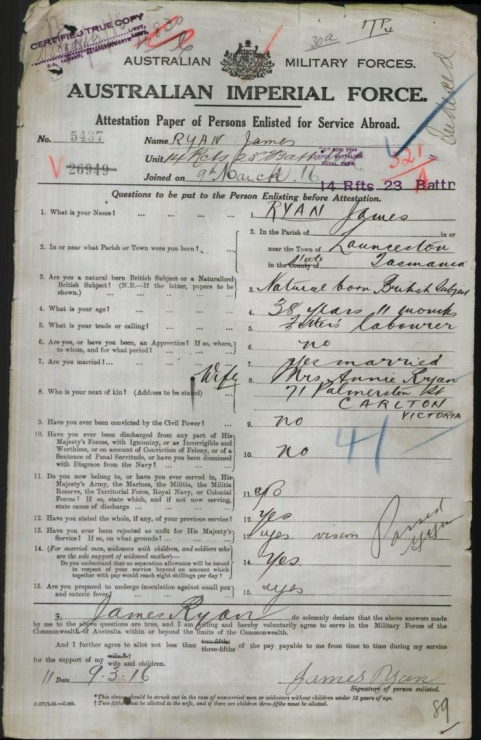 CERTIFIED TRUE COPY
AUSTRALIAN MILITARY FORCES.
AUSTRALIAN IMPERIAL FORCE.
Attestation Paper of Persons Enlisted for Service Abroad.
No. 5437 Name RYAN James
26949 Unit 14 Rfts 23rd Battn
Joined on 9th March 16
14 Rfts. 23 Battn
321 A
Questions to be put to the Person Enlisting before Attestation.
1. What is your Name? ... ... ... ... 1. RYAN James
2. In or near what Parish or Town were you born? ... 2. In the Parish of in or
near the Town of Launceston
in the County of State Tasmania
3. Are you a natural born British Subject or a Naturalized
British Subject? (N.B.—If the latter, papers to be
shown.) ... ... ... 3. Natural born British Subject
4. What is your age? ... ... ... ... 4. 38 years 11 months
5. What is your trade or calling? ... ... ... 5. labourer
6. Are you, or have you been, an Apprentice? If so, where,
to whom, and for what period? ... ... 6. no
7. Are you married? ... ... ... ... 7. yes married
8. Who is your next of kin? (Address to be stated) Wife 8. Mrs Annie Ryan
71 Palmerston St
CARLTON
VICTORIA
9. Have you ever been convicted by the Civil Power? ... 9. no
10. Have you ever been discharged from any part of His
Majesty's Forces, with Ignominy, or as Incorrigible and
Worthless, or on account of Conviction of Felony, or of a
Sentence of Penal Servitude, or have you been dismissed
with Disgrace from the Navy? ... ... 10. no
11. Do you now belong to, or have you ever served in, His
Majesty's Army, the Marines, the Militia, the Militia
Reserve, the Territorial Force, Royal Navy, or Colonial
Forces? If so, state which, and if not now serving,
state cause of discharge ... ... 11. no
12. Have you stated the whole, if any, of your previous service? 12. yes
13. Have you ever been rejected as unfit for His Majesty's
Service? If so, on what grounds? ... ... 13. yes vision
14. (For married men, widowers with children, and soldiers who
are the sole support of widowed mother)—
Do you understand that no separation allowance will be issued
in respect of your service beyond an amount which
together with pay would reach eight shillings per day? 14. yes
15. Are you prepared to undergo inoculation against small pox
and enteric fever? ... ... ... 15. yes
I, James Ryan do solemnly declare that the above answers made
by me to the above questions are true, and I am willing and hereby voluntarily agree to serve in the Military Force of the
Commonwealth of Australia within or beyond the limits of the Commonwealth.
And I further agree to allot not less than two-fifths three-fifths of the pay payable to me from time to time during my service
for the support of my wife wife and children.
Date 9.3.16 James Ryan
Signature of person enlisted.
*This clause should be struck out in the case of unmarried men or widowers without children under 18 years of age.
† Two-fifths must be allotted to the wife, and if there are children three-fifths must be allotted.
89